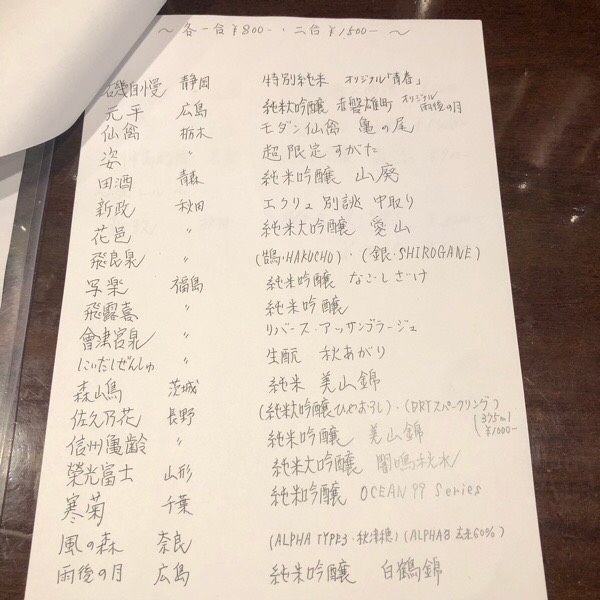 ～ 各一合 ¥800-・二合 ¥1500- ～
磯自慢 静岡 特別純米 オリジナル「青春」
元平 広島 純米吟醸 赤磐雄町 オリジナル 雨後の月
仙禽 栃木 モダン仙禽 亀の尾
姿 〃 超限定 すがた
田酒 青森 純米吟醸 山廃
新政 秋田 エクリュ 別誂 中取り
花邑 〃 純米大吟醸 愛山
飛良泉 〃 (鵠・HAKUCHO)・(銀・SHIROGANE)
写楽 福島 純米吟醸 なごしざけ
飛露喜 〃 純米吟醸
會津宮泉 〃 リバース・アッサンブラージュ
にいだしぜんしゅ 〃 生酛 秋あがり
森嶋 茨城 純米 美山錦
佐久乃花 長野 (純米吟醸ひやおろし)・(DRYスパークリング) 375ml ¥1000-
信州亀齢 〃 純米吟醸 美山錦
榮光冨士 山形 純米大吟醸 闇鳴秋水
寒菊 千葉 純米吟醸 OCEAN 99 Series
風の森 奈良 (ALPHA TYPE3・秋津穂) (ALPHA8 玄米60%)
雨後の月 広島 純米吟醸 白鶴錦